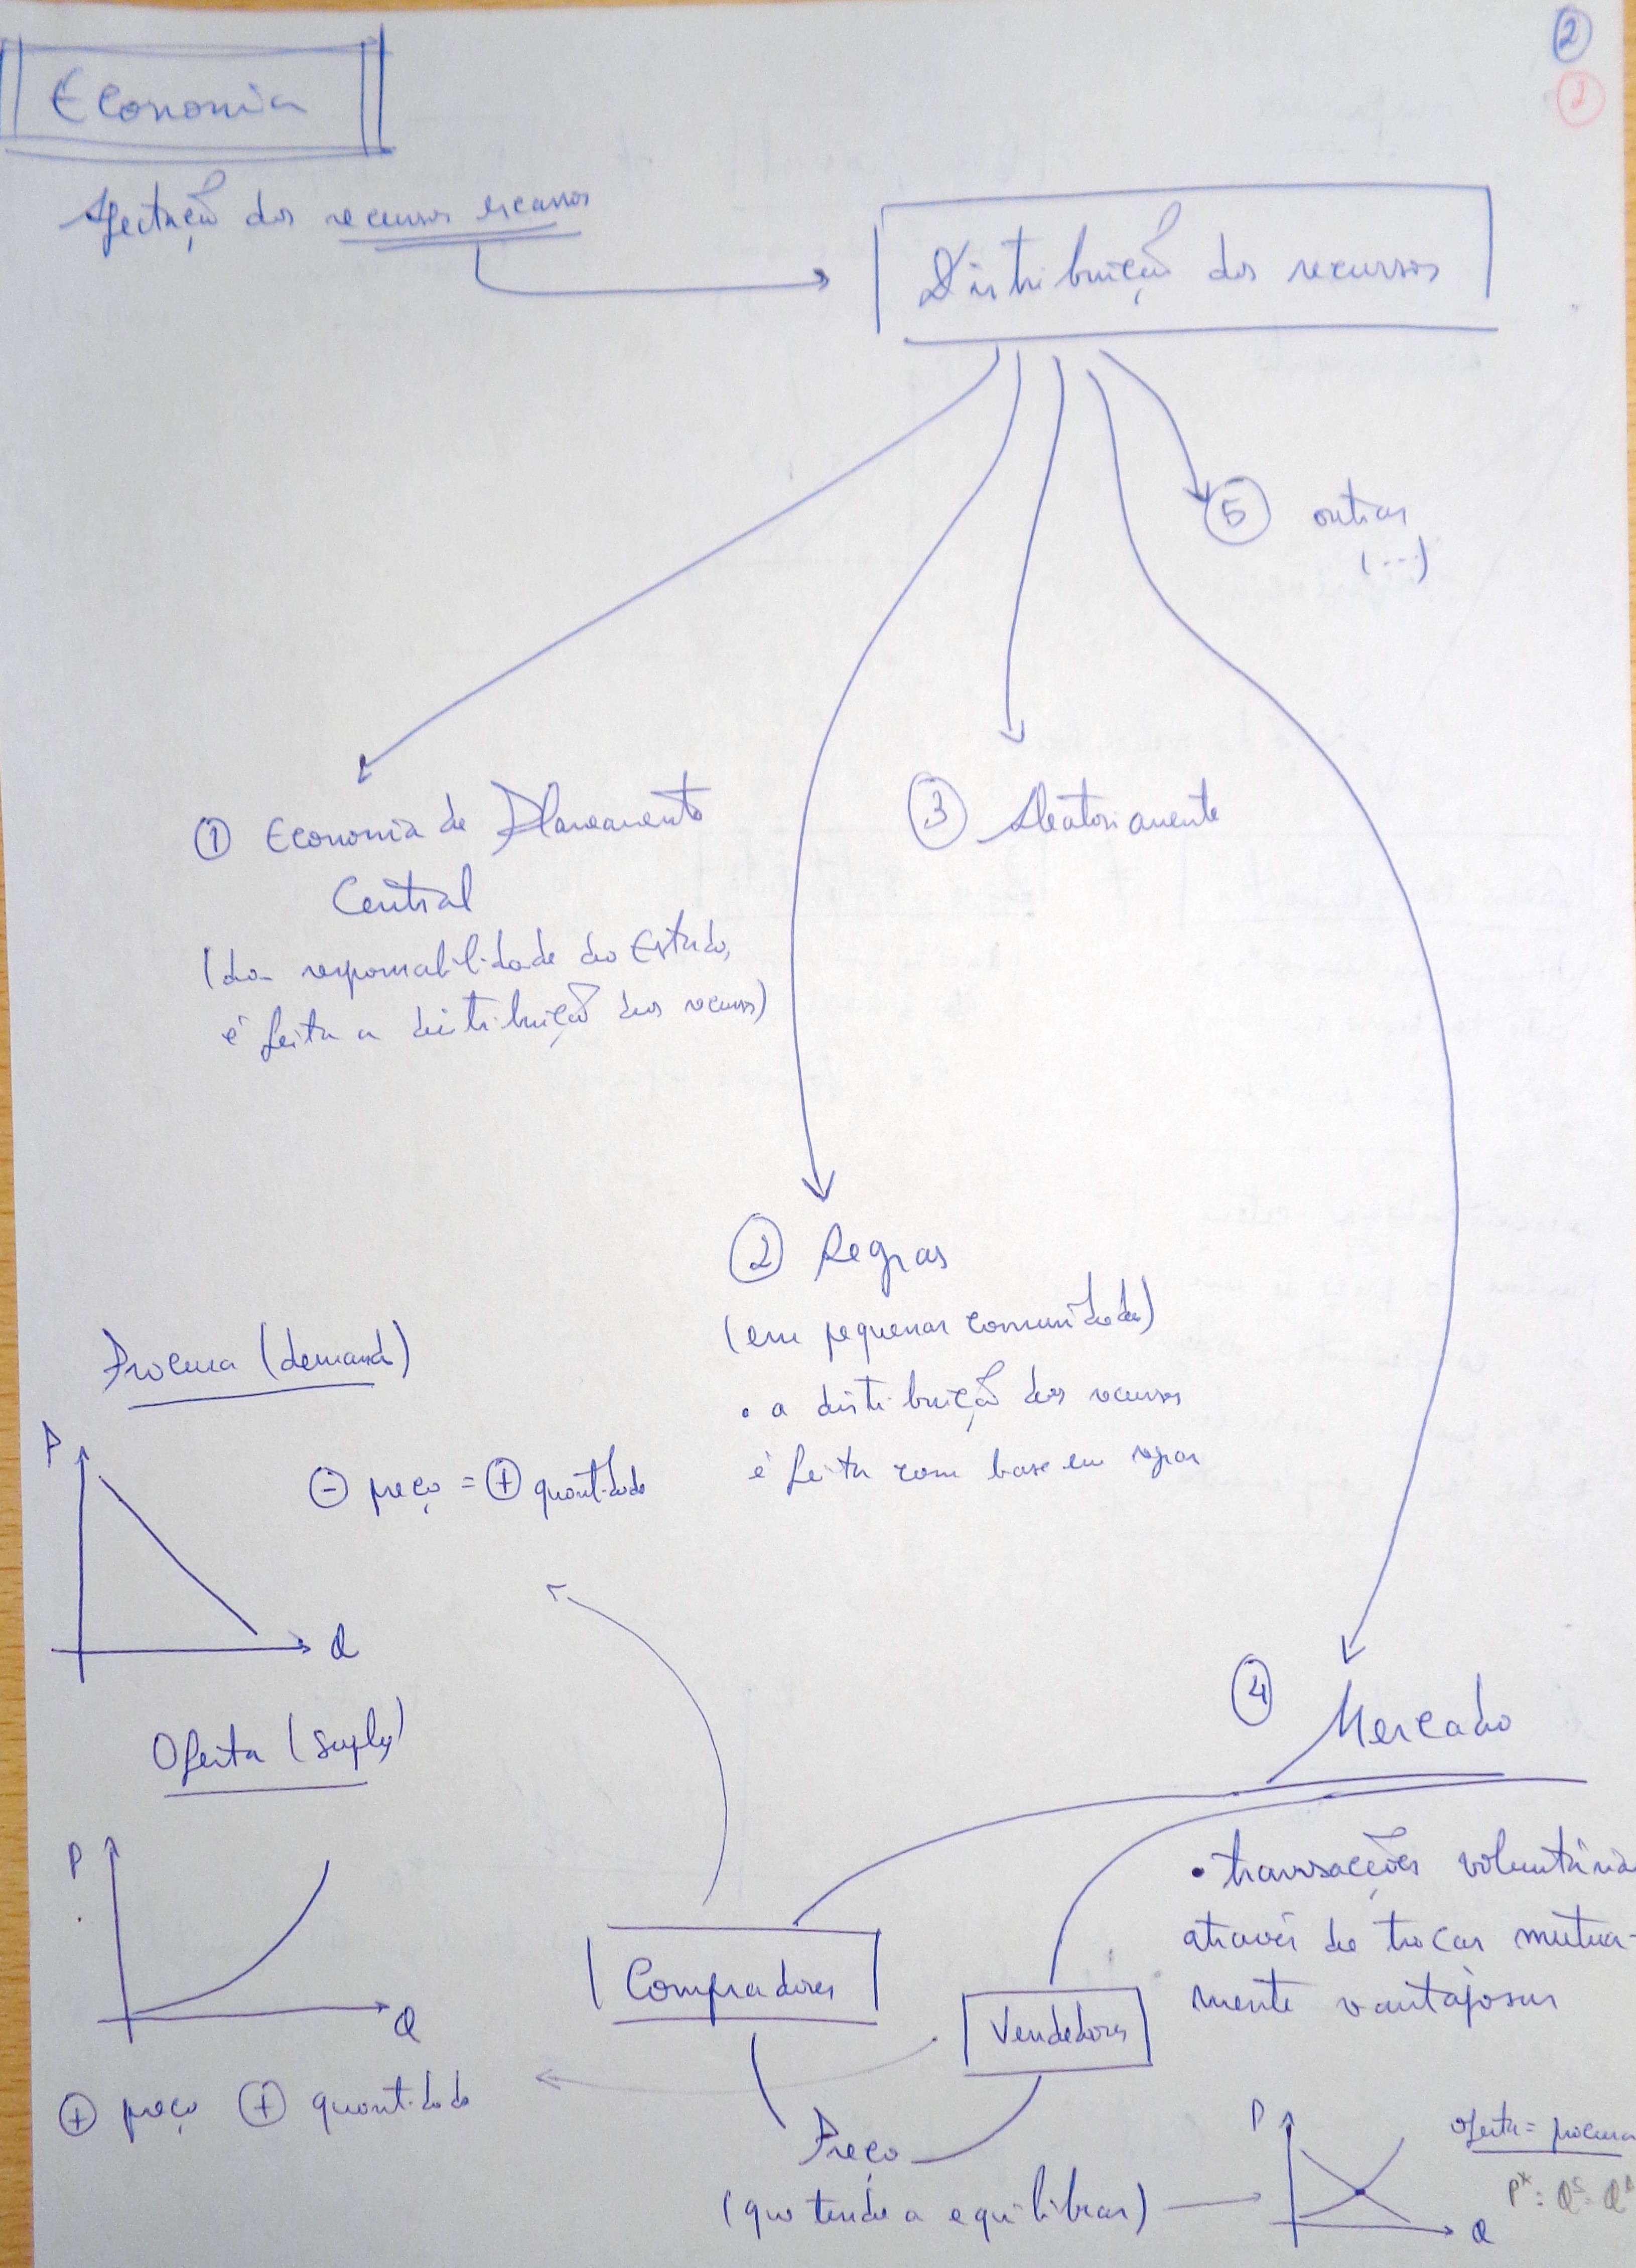 2
1
Economia
Afectação dos recursos escassos
Distribuição dos recursos
5 outras
(...)
1 Economia de Planeamento
Central
(da responsabilidade do Estado,
é feita a distribuição dos recursos)
3 Aleatoriamente
2 Regras
(em pequenas comunidades)
• a distribuição dos recursos
é feita com base em regras
Procura (demand)
P
- preço = + quantidade
Q
4 Mercado
Oferta (suply)
P
Q
+ preço + quantidade
• transacções voluntária
através de trocas mutua-
mente vantajosas
Compradores
Vendedores
Preço
(que tende a equilibrar)
P
Q
Oferta = procura
P* : Qs = Qd